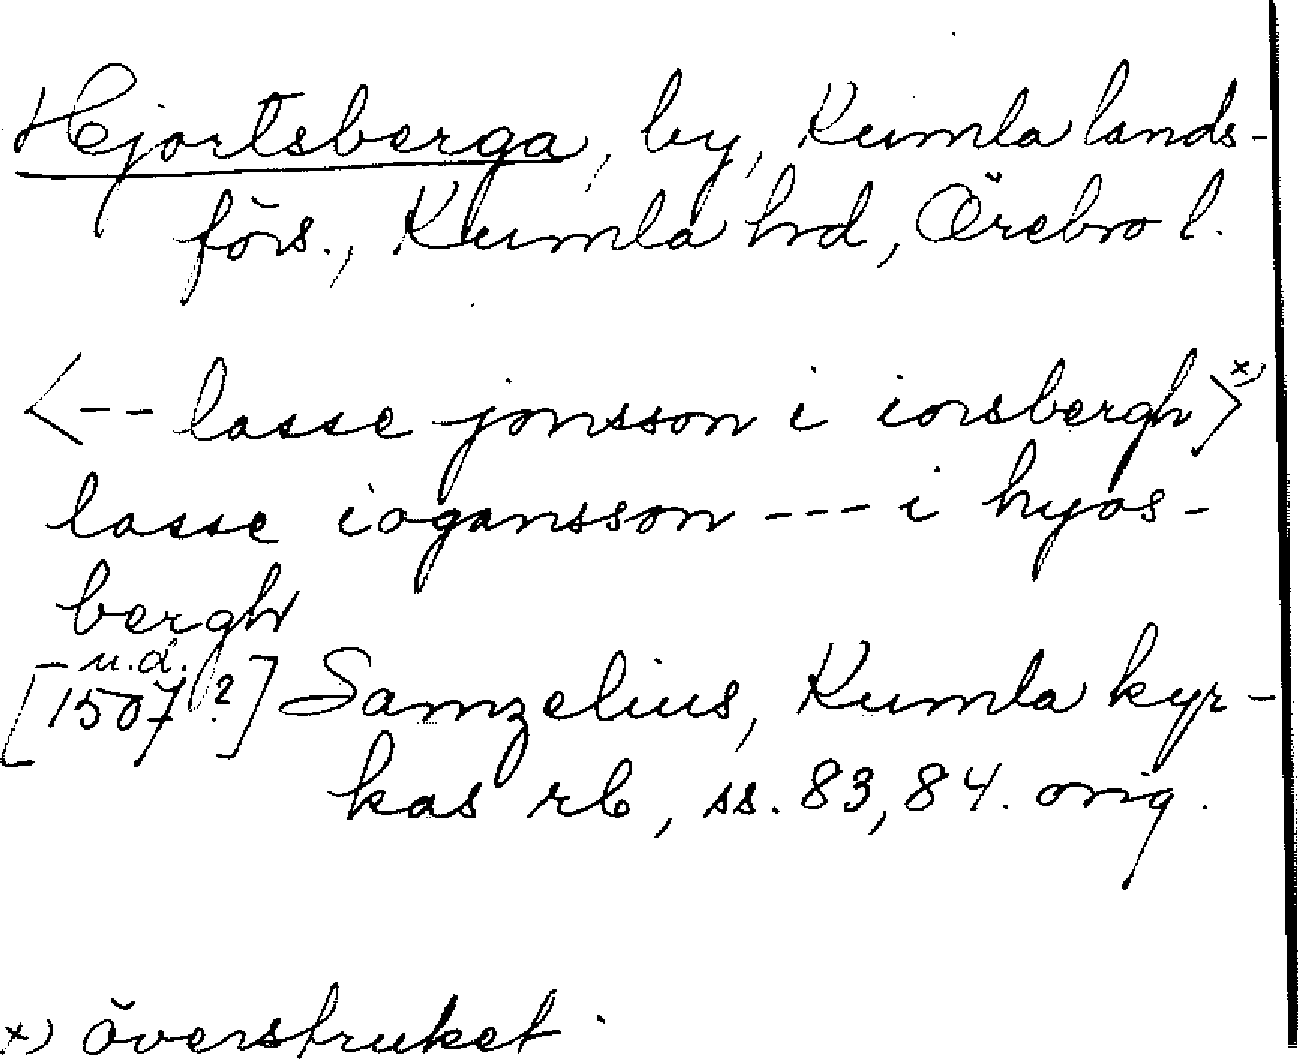 Hjortsberga, by, Kumla lands-
förs., Kumla hrd, Örebro l.
<-- lasse jonsson i iorsbergh> x)
lasse iogansson --- i hyos-
bergh
u.d.
[1507?] Samzelius, Kumla kyr-
kas rb, ss. 83, 84. orig.
x) överstruket.